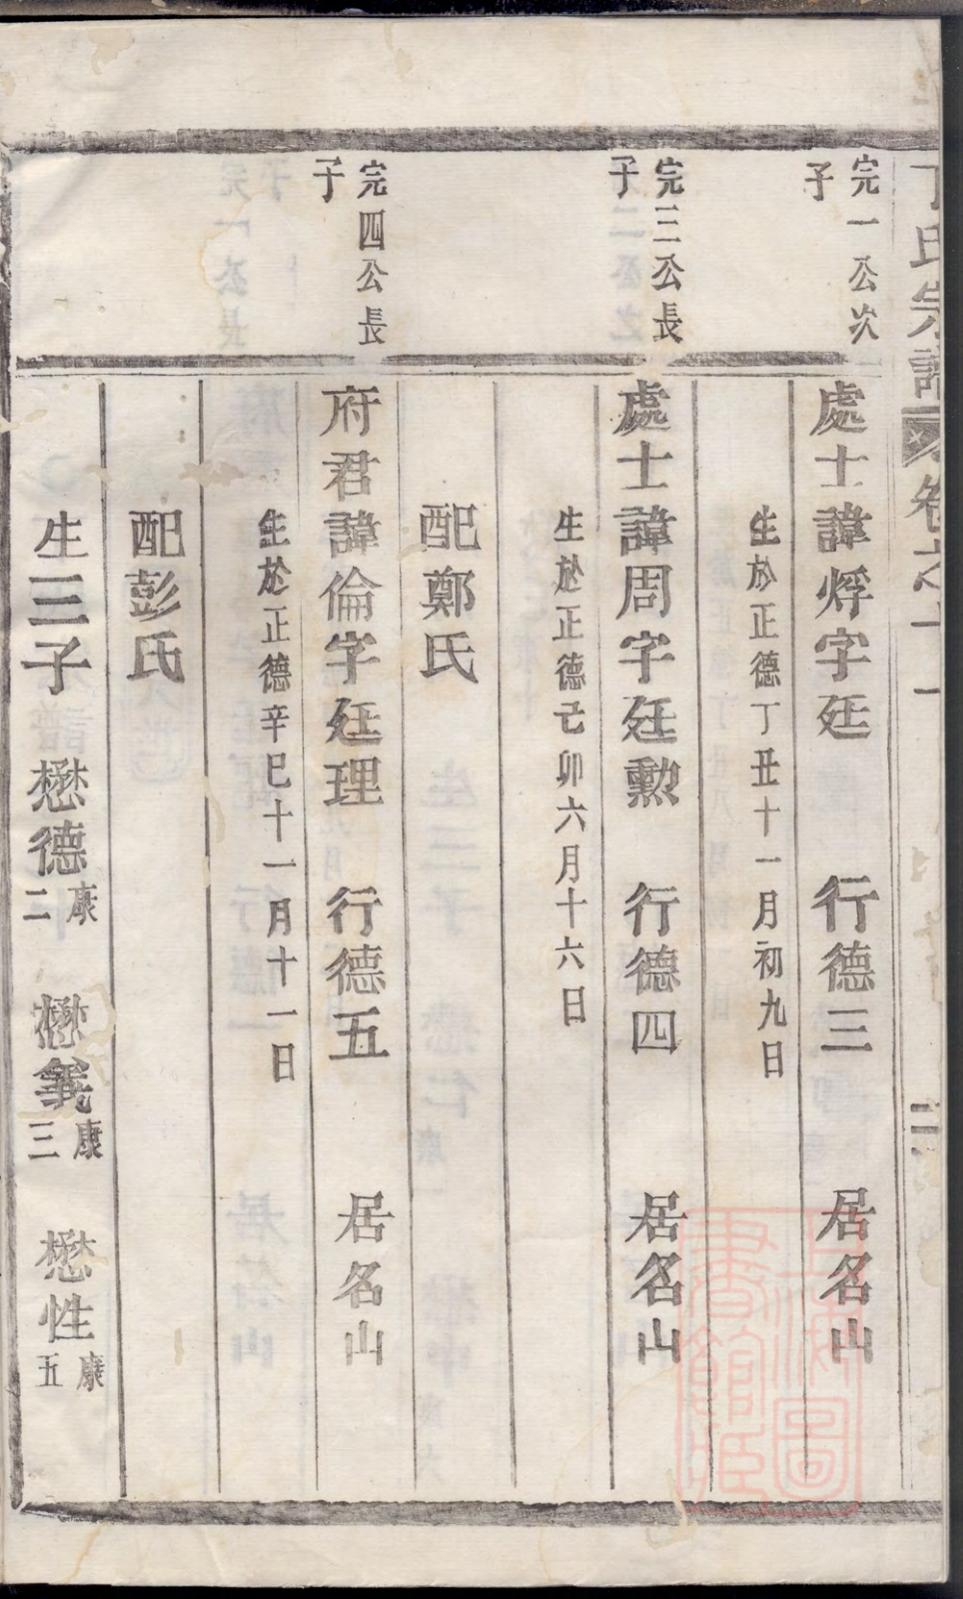 丁氏宗譜 卷之十一 二
完一公次
子
處士諱烰字廷 行德三 居名山
生於正德丁丑十一月初九日
完三公長
子
處士諱周字廷勲 行德四 居名山
生於正德己卯六月十六日
配鄭氏
完四公長
子
府君諱倫字廷理 行德五 居名山
生於正德辛巳十一月十一日
配彭氏
生三子 懋德康二 懋義康三 懋性康五
上海圖書館藏